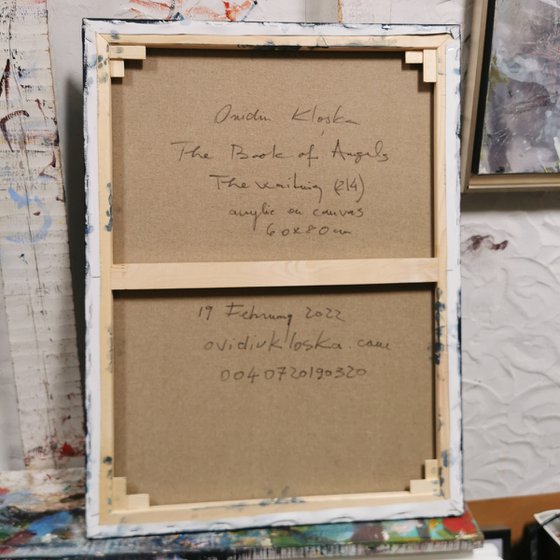 Ovidiu Kloska
The Book of Angels
The waiting (214)
acrylic on canvas
60x80cm
19 February 2022
ovidiukloska.com
0040720190320